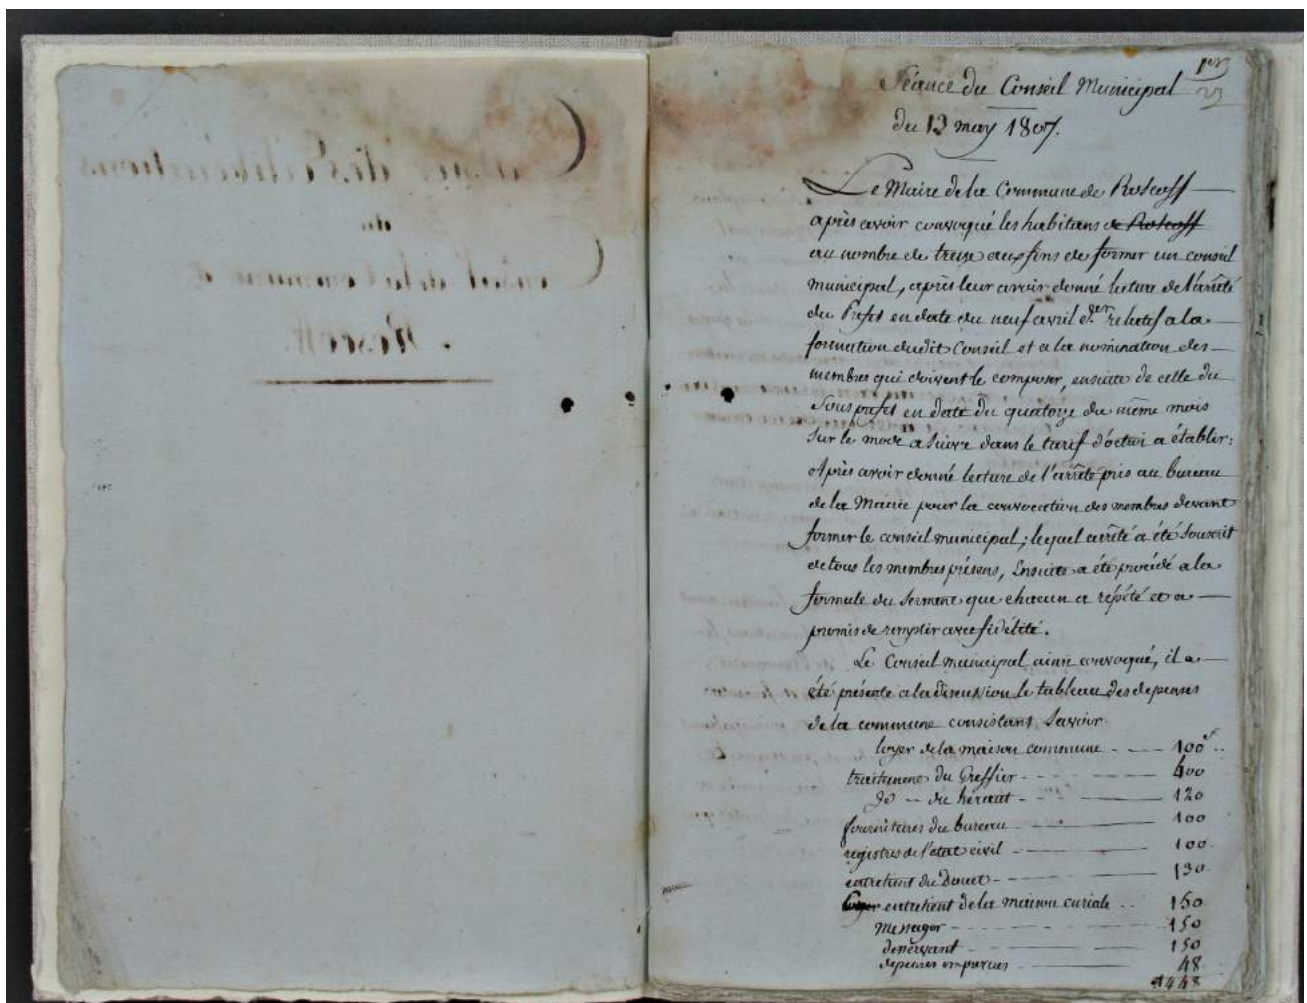 Cahier des Délibérations
du
Conseil de la Commune de
Roscoff.
1er
23
Séance du Conseil Municipal
du 13 may 1807.
Le Maire de la Commune de Roscoff
après avoir convoqué les habitans de Roscoff
au nombre de treize aux fins de former un conseil
municipal, après leur avoir donné lecture de l'arrêté
du Préfet en date du neuf avril der relatif a la
formation dudit Conseil et a la nomination des
membres qui doivent le composer, ensuite de celle du
Souspréfet en date du quatorze du même mois
sur le mode a suivre dans le tarif d'octroi a établir:
Après avoir donné lecture de l'arrêté pris au bureau
de la Mairie pour la convocation des membres devant
former le conseil municipal; lequel arrêté a été souscrit
de tous les membres présens, Ensuite a été procédé a la
formule du serment que chacun a répété et a
promis de remplir avec fidélité.
Le Conseil municipal ainsi convoqué, il a
été présenté a la discussion le tableau des depenses
de la commune consistant Savoir
loyer de la maison commune 100f
traitement du Greffier 400
do du héraut 120
fournitures du bureau 100
registres de l'état civil 100
entretient du Douet 130
loyer entretient de la maison curiale 150
Messager 150
desservant 150
depenses imprevues 48
1448